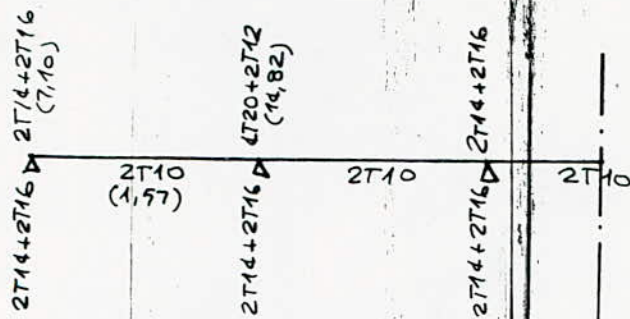 2T14+2T16
(7,10)
4T20+2T12
(14,82)
2T14+2T16
2T10
(1,57)
2T10
2T10
2T14+2T16
2T14+2T16
2T14+2T16